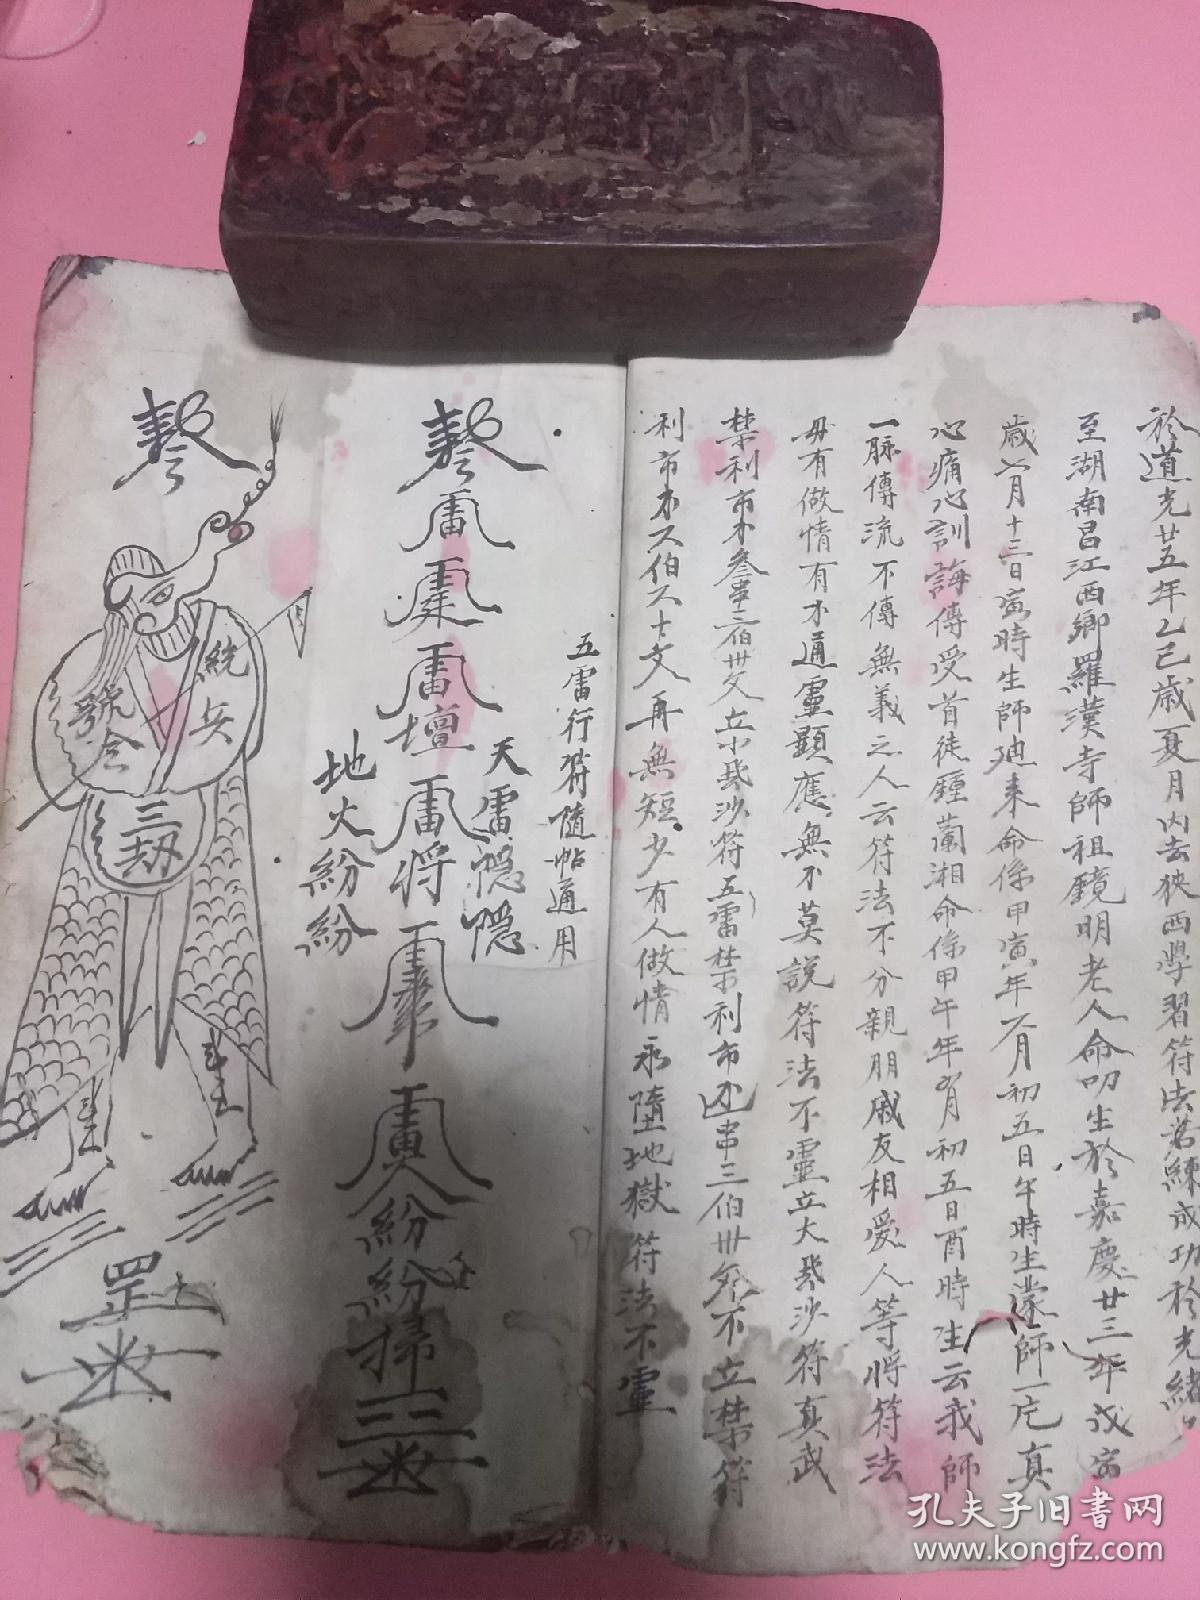 於道光廿五年乙巳歲夏月內去狹西學習符法苦練成功於光緒
至湖南昌江西鄉羅漢寺師祖鏡明老人命叨生於嘉慶廿三年戊寅
歲 月十三日寅時生師 來命係甲寅年六月初五日午時生蒙師一片真
心痛心訓誨傳受首徒鍾蘭湘命係甲午年 月初五日酉時生云我師
一脉傳流不傳無義之人云符法不分親朋戚友相愛人等將符法
毋有做情有不通靈顯應無不莫說符法不靈立大 沙符真武
禁利市 叁串六伯卅文立小 沙符五雷禁利市 串三伯卅 不立禁符
利市 又伯又十文再無短少有人做情永墮地獄符法不靈
五雷行符隨帖通用
天雷隱隱
雷壇雷將
紛紛掃
地火紛紛
統兵
號令
三刼
罡
孔夫子旧书网
www.kongfz.com